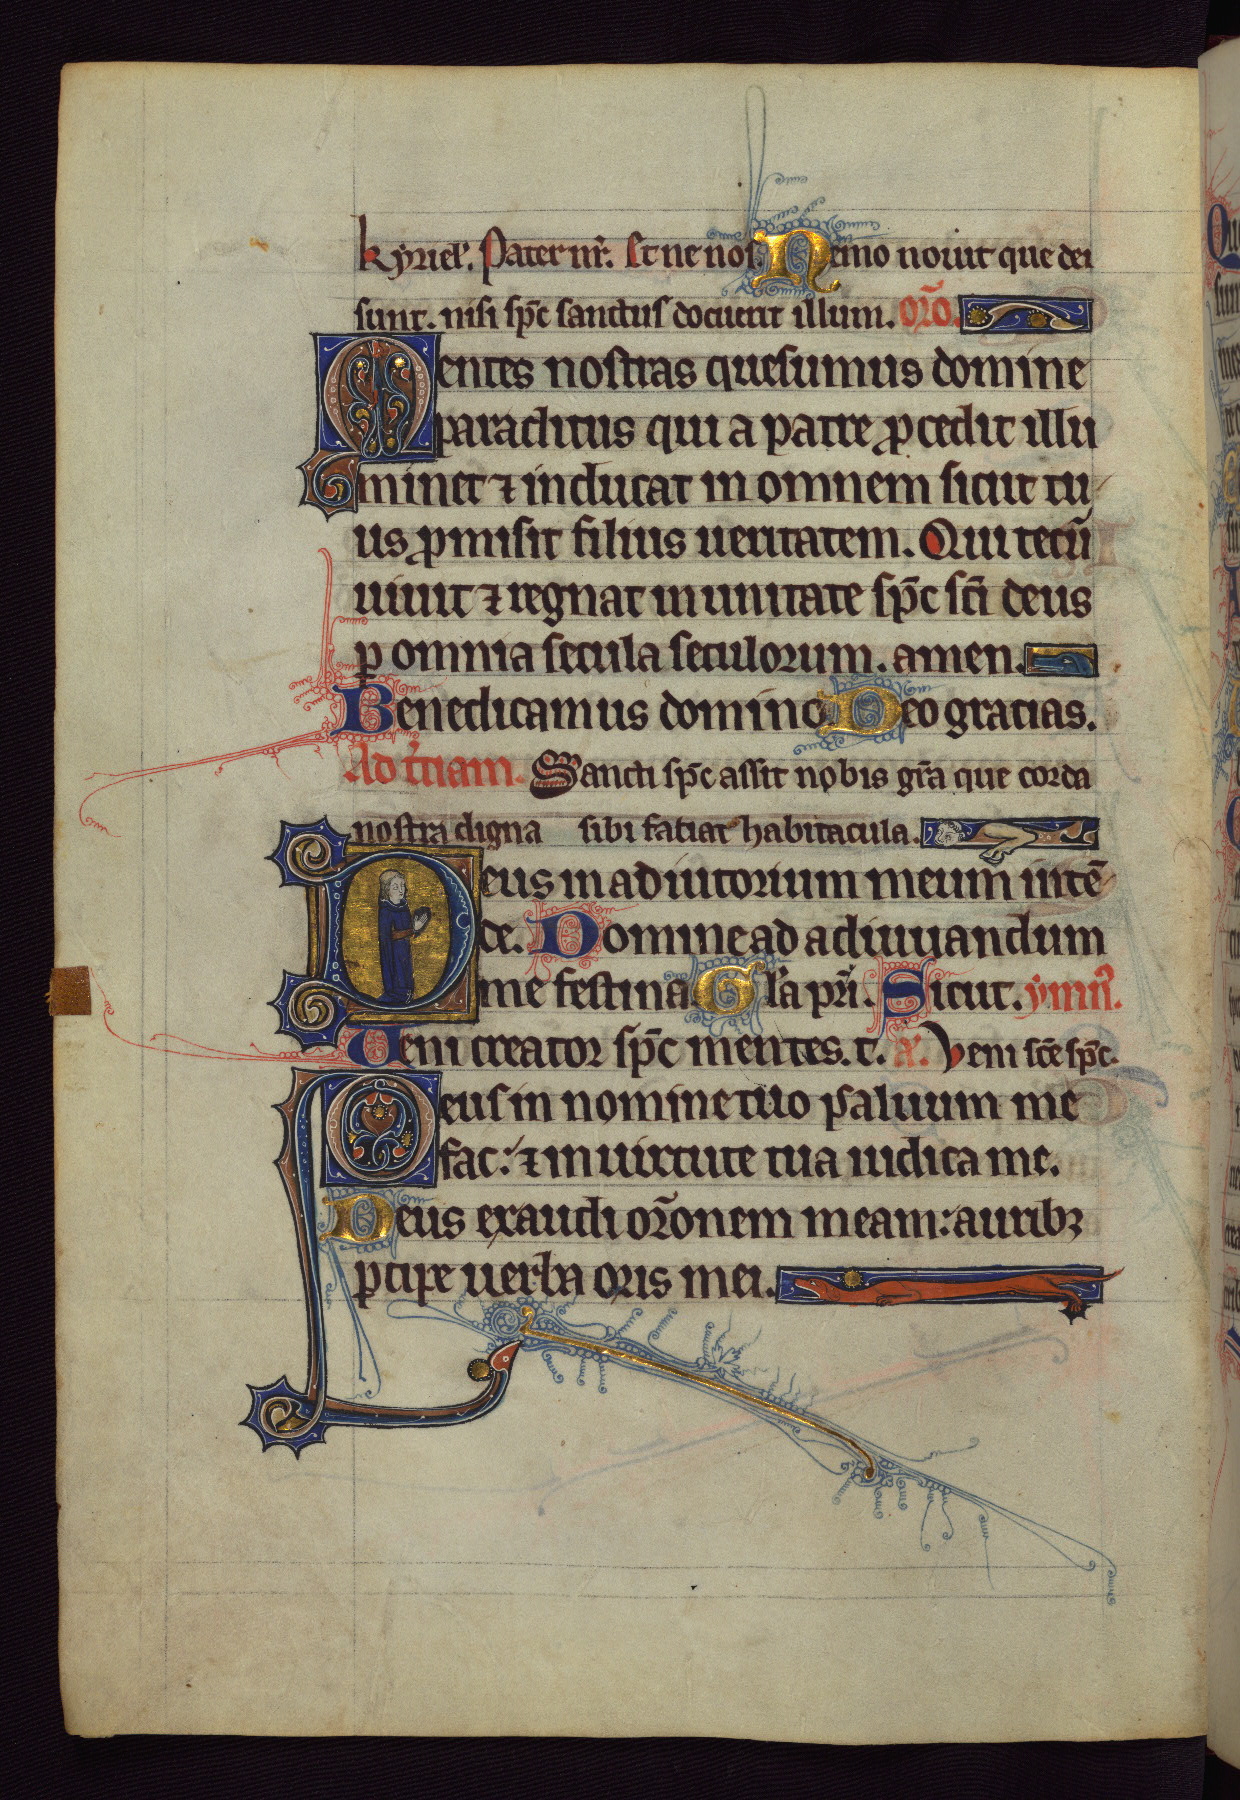 kyriel'. Pater nr̄. Et ne nos. Nemo nouit que dei
sunt. nisi sp̄c sanctus docuerit illum. or̄o.
Mentes nostras quesumus domine
paraclitus qui a patre ꝓcedit illu
minet ⁊ inducat in omnem sicut tu
us ꝓmisit filius ueritatem. Qui tecū
uiuit ⁊ regnat in unitate sp̄c sc̄i deus
ꝑ omnia secula seculorum. amen.
Benedicamus domino Deo gracias.
Ad t'ciam. Sancti sp̄c assit nobis gr̄a que corda
nostra digna sibi faciat habitacula.
Deus in adiutorium meum intē
de. Domine ad adiuuandum
me festina. Gl'a pr̄i. Sicut. ymn'.
Veni creator sp̄c mentes. t. a'. Veni sc̄e sp̄c.
Deus in nomine tuo saluum me
fac: ⁊ in uirtute tua iudica me.
Deus exaudi or̄onem meam: auribꝫ
ꝑcipe uerba oris mei.